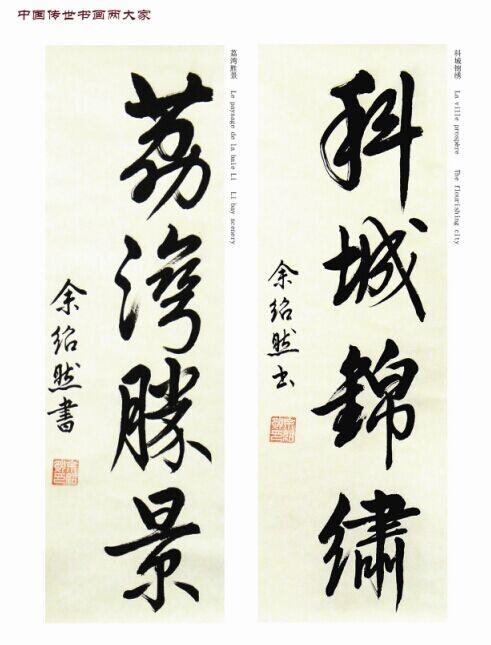 中国传世书画两大家
科城錦繡
余绍然书
科城锦绣 La ville prospère The flourishing city
荔灣勝景
余绍然書
荔湾胜景 Le paysage de la baie Li Li bay scenery